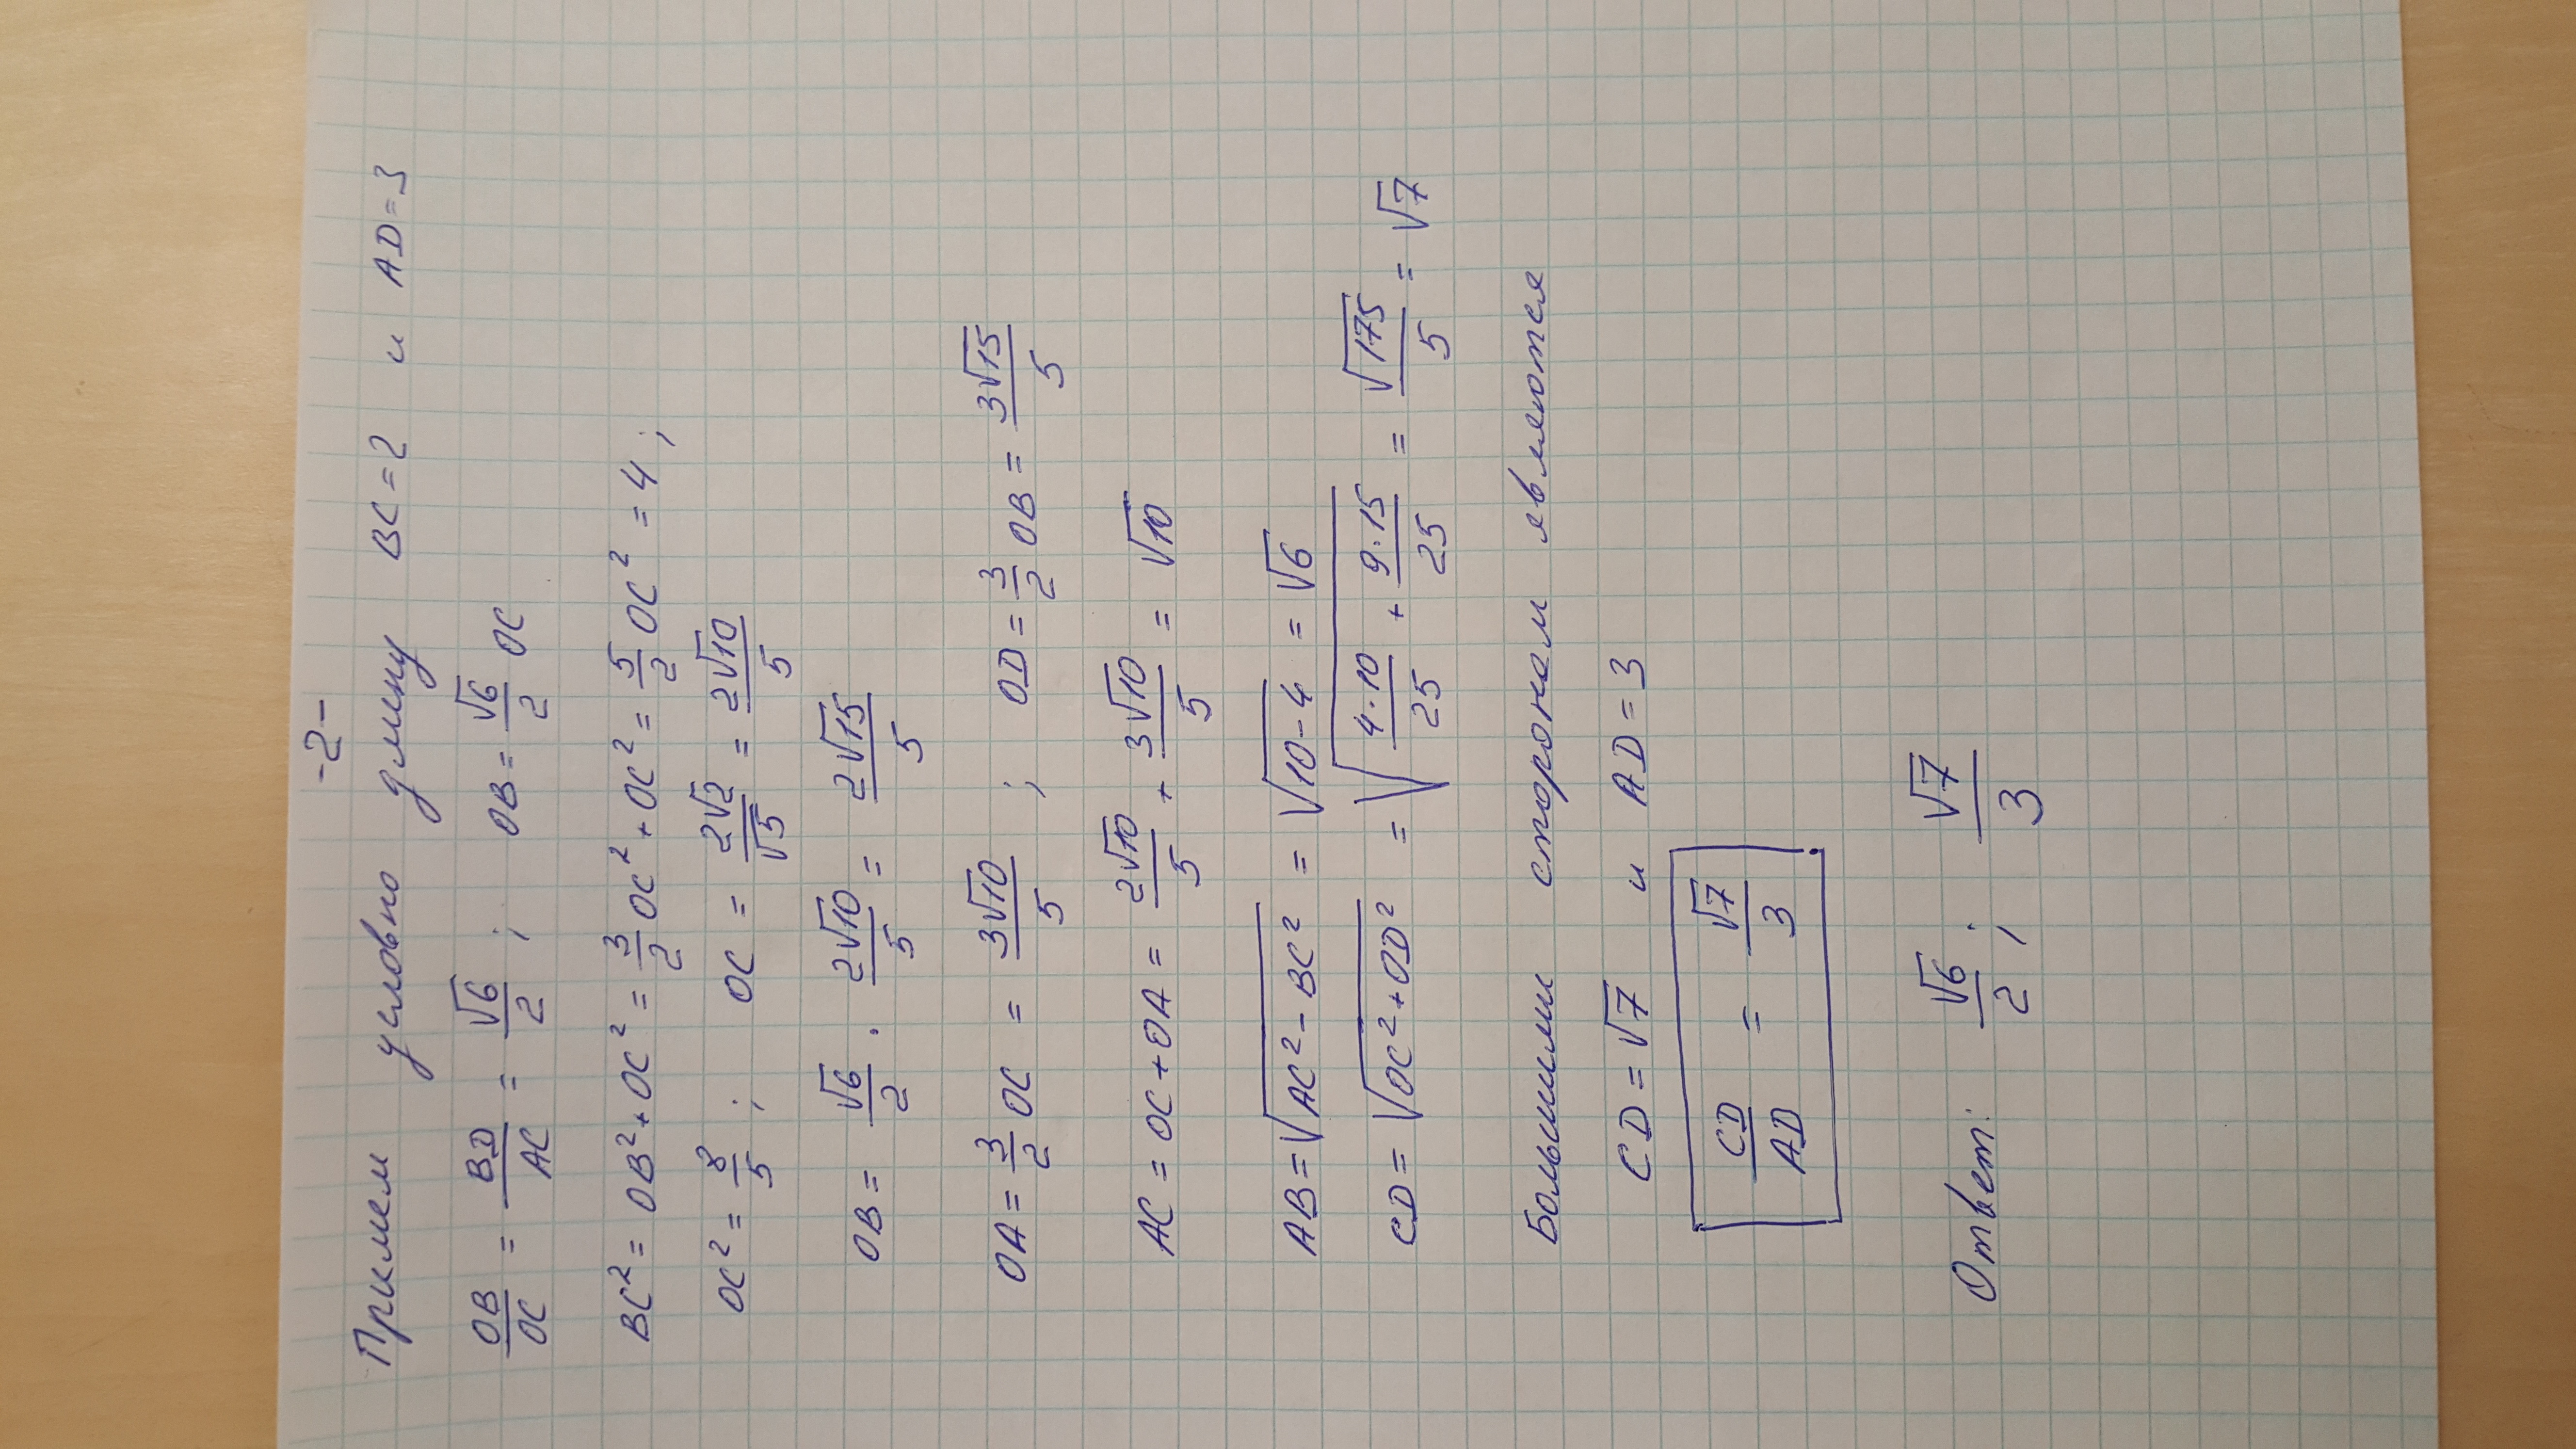 -2-
Примем условно длину BC=2 и AD=3
OB/OC = BD/AC = √6/2 ; OB = √6/2 OC
BC² = OB² + OC² = 3/2 OC² + OC² = 5/2 OC² = 4 ;
OC² = 8/5 ; OC = 2√2/√5 = 2√10/5
OB = √6/2 · 2√10/5 = 2√15/5
OA = 3/2 OC = 3√10/5 ; OD = 3/2 OB = 3√15/5
AC = OC + OA = 2√10/5 + 3√10/5 = √10
AB = √(AC² - BC²) = √(10-4) = √6
CD = √(OC² + OD²) = √(4·10/25 + 9·15/25) = √175/5 = √7
Большими сторонам являются
CD = √7 и AD = 3
CD/AD = √7/3
Ответ: √6/2 ; √7/3